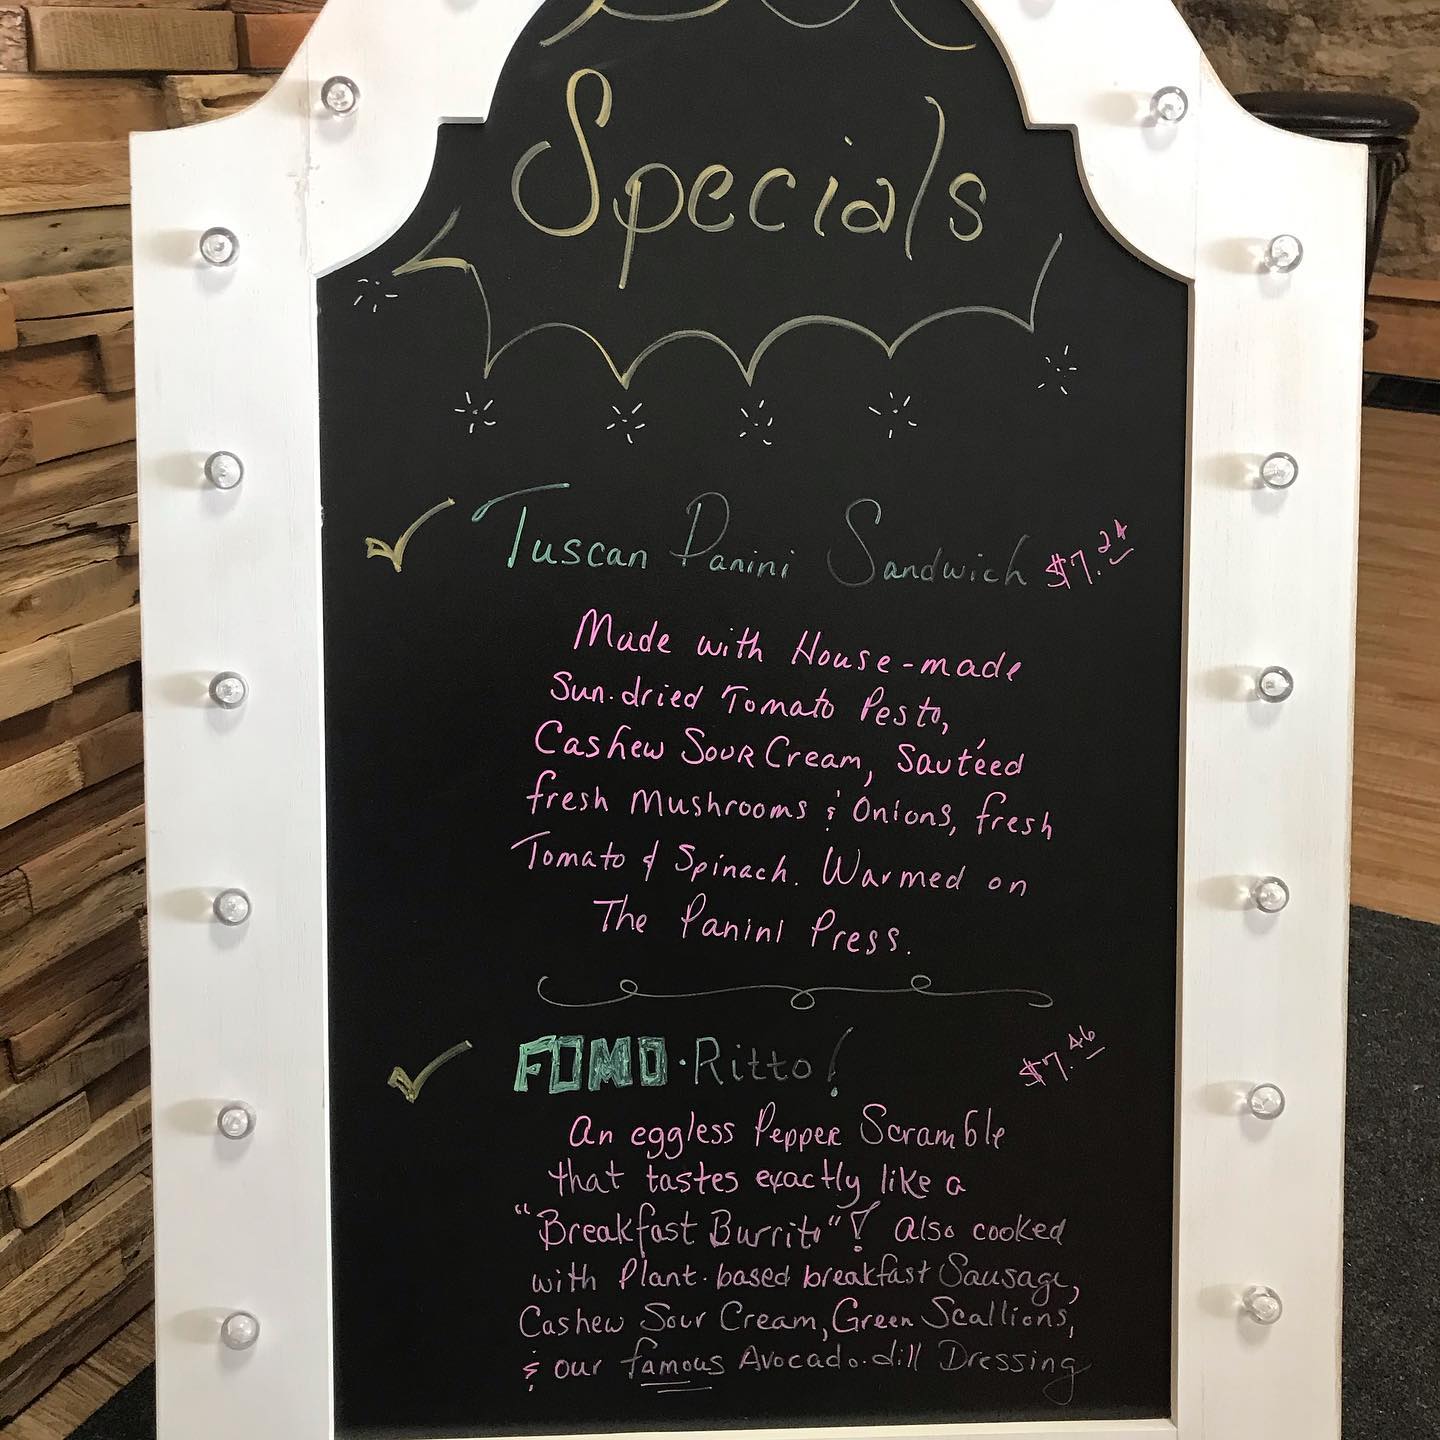 Specials
Tuscan Panini Sandwich $7.24
Made with House-made
Sun-dried Tomato Pesto,
Cashew Sour Cream, Sautéed
fresh Mushrooms & Onions, fresh
Tomato & Spinach. Warmed on
The Panini Press.
FOMO-Ritto! $7.46
An eggless Pepper Scramble
that tastes exactly like a
"Breakfast Burrito"! Also cooked
with Plant-based breakfast Sausage,
Cashew Sour Cream, Green Scallions,
& our famous Avocado-dill Dressing